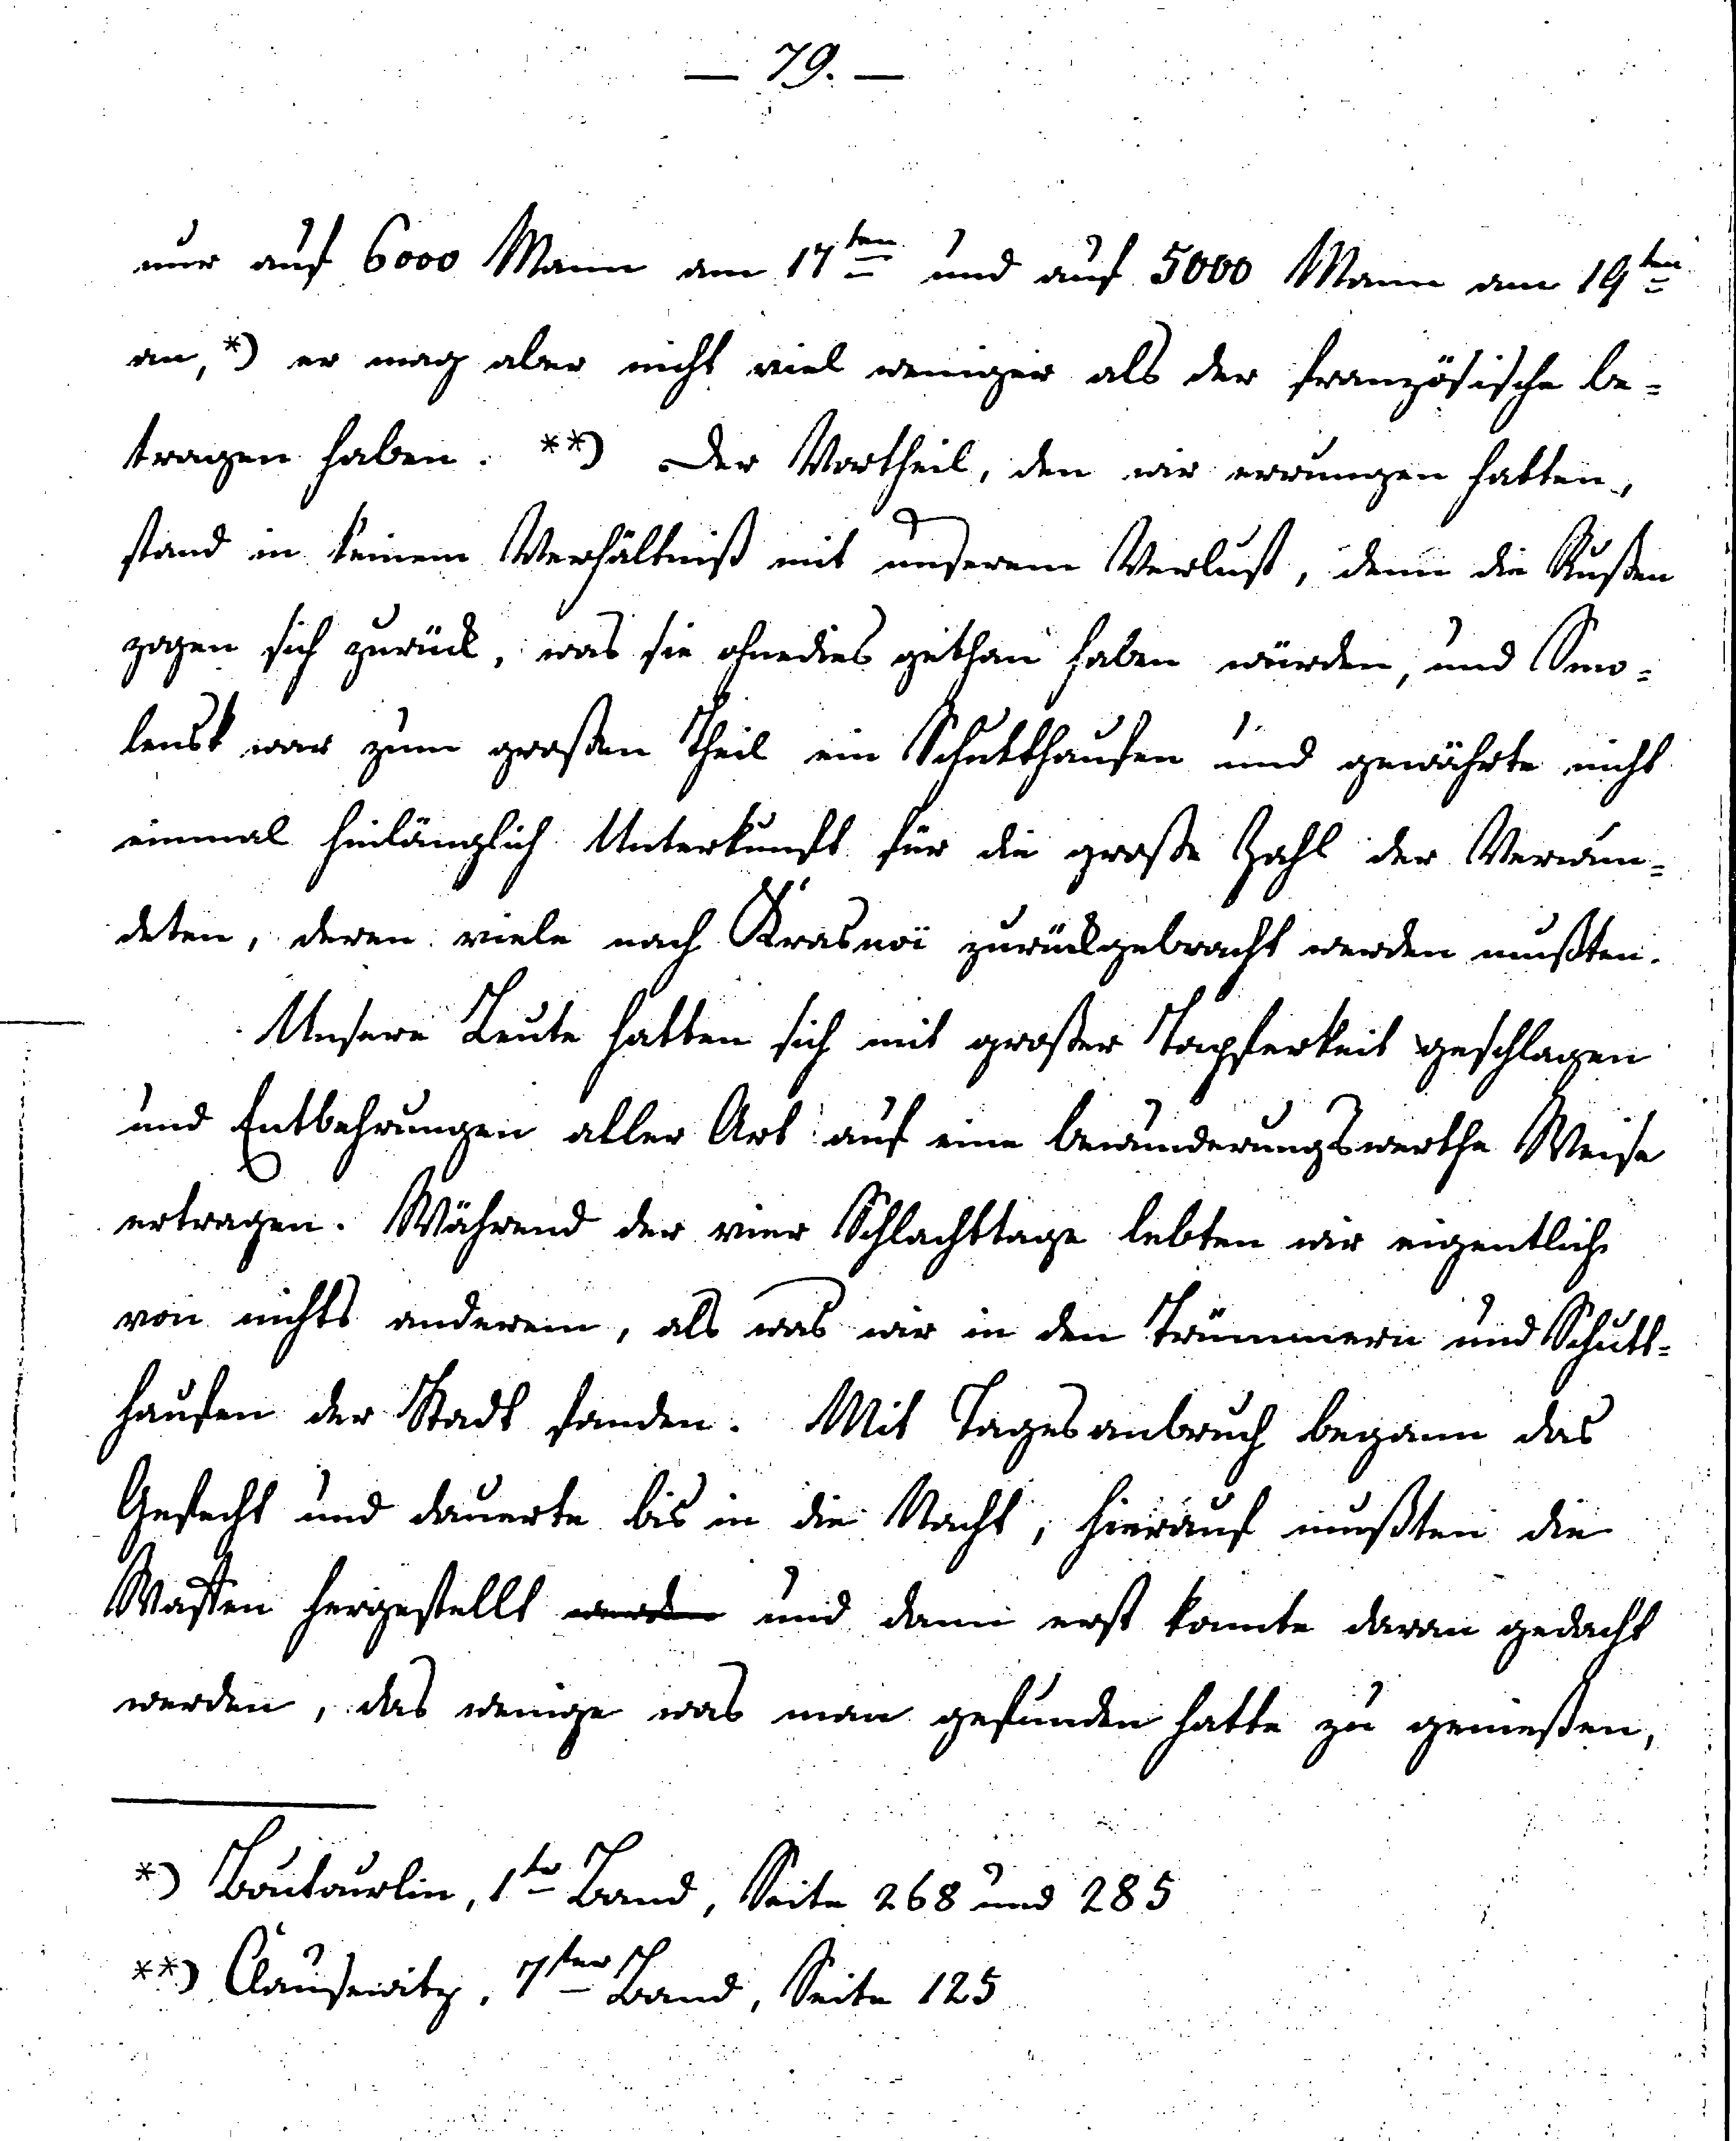 — 79. —
nur auf 6000 Mann am 17ten und auf 5000 Mann am 19ten
an, *) er mag aber nicht viel weniger als der französische be-
tragen haben. **) Der Vortheil, den wir errungen hatten,
stand in keinem Verhältniß mit unserem Verlust, denn die Rußen
zogen sich zurück, was sie ohnedies gethan haben würden, und Smo-
lensk war zum großen Theil ein Schutthaufen und gewährte nicht
einmal hinlänglich Unterkunft für die große Zahl der Verwun-
deten, deren viele nach Krasnoï zurückgebracht werden mußten.
Unsere Leute hatten sich mit großer Tapferkeit geschlagen
und Entbehrungen aller Art auf eine bewunderungswerthe Weise
ertragen. Während der vier Schlachttage lebten wir eigentlich
von nichts anderem, als was wir in den Trümmern und Schutt-
haufen der Stadt fanden. Mit Tagesanbruch begann das
Gefecht und dauerte bis in die Nacht, hierauf mußten die
Waffen hergestellt werden und dann erst konnte daran gedacht
werden, das wenige was man gefunden hatte zu genießen,
*) Boutourlin, 1ter Band, Seite 268 und 285
**) Clausewitz, 7ter Band, Seite 125